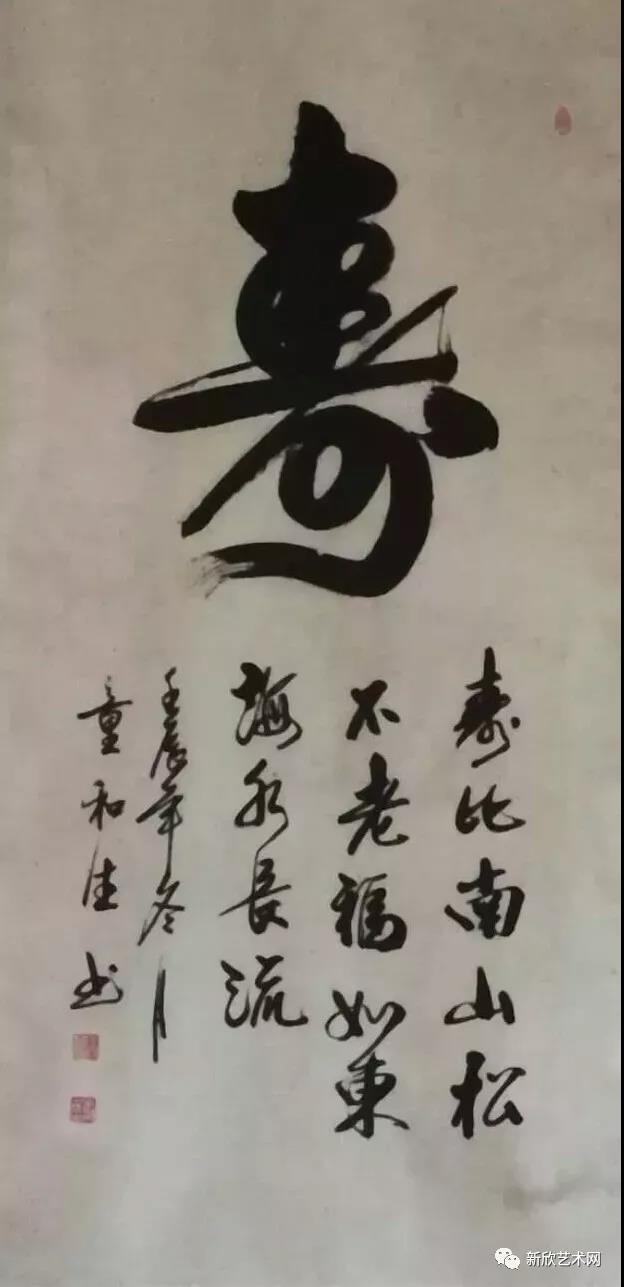 壽
壽比南山松
不老福如東
海水長流
壬辰年冬月
童和生书
新欣艺术网